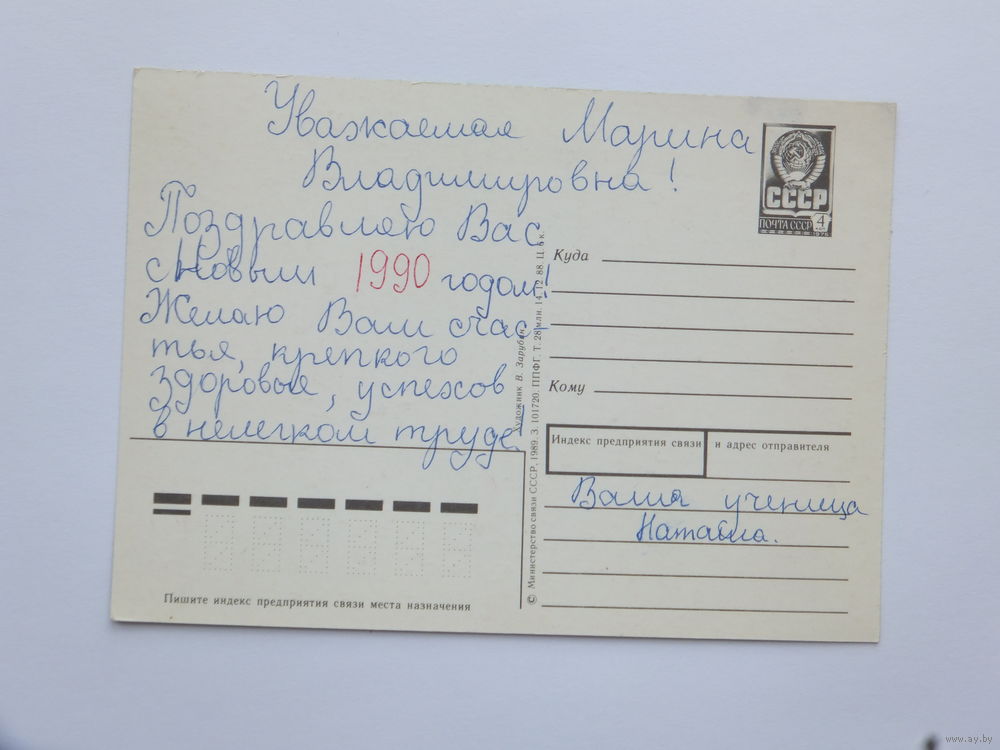 Уважаемая Марина
Владимировна!
Поздравляю Вас
с Новым 1990 годом!
Желаю Вам счас-
тья, крепкого
здоровья, успехов
в нелегком труде!
СССР
ПОЧТА СССР 4
1976
Куда
Кому
Индекс предприятия связи и адрес отправителя
Ваша ученица
Наталья.
Пишите индекс предприятия связи места назначения
© Министерство связи СССР, 1989. З. 101720. ППФГ. Т. 28 млн. 14.12.88. Ц. 6 к.
Художник В. Зарубин
www.ay.by